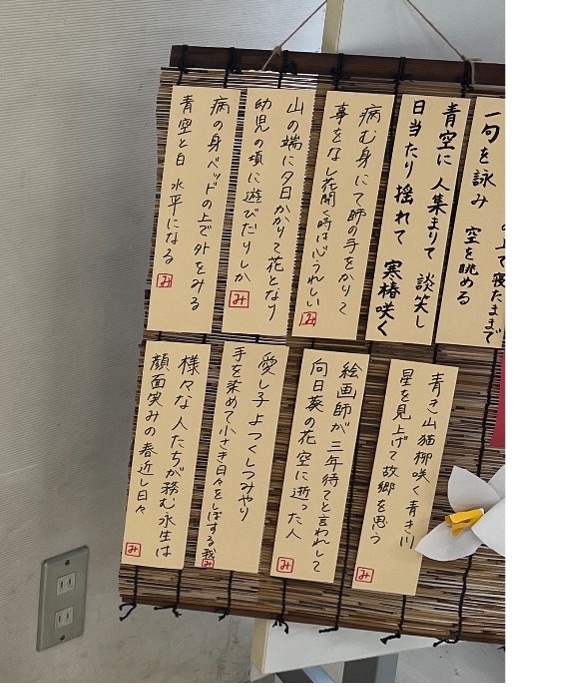 の上で寝たままで
一句を詠み 空を眺める
青空に 人集まりて 談笑し
日当たり 揺れて 寒椿咲く
病む身にて師の手をかりて
事をなし花開く時は心うれしい
み
山の端に夕日かかりて花となり
幼児の頃に遊びだりしか
み
病の身ベッドの上で外をみる
青空と白 水平になる
み
青き山猫柳咲く青き川
星を見上げて故郷を思う
み
絵画師が三年待てと言われして
向日葵の花空に逝った人
み
愛し子よつくしつみやり
手を染めて小さき日々を
み
様々な人たちが務む永生は
顔面笑みの春近し日々
み